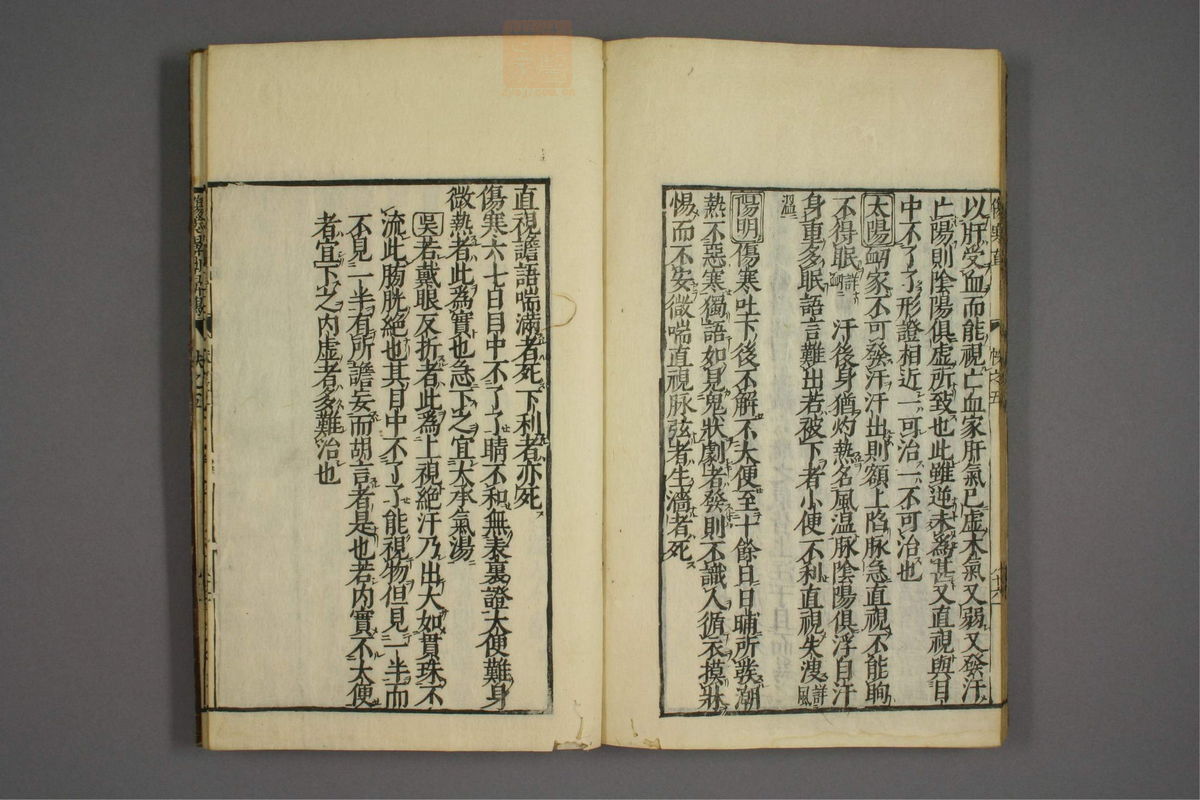 以肝受血而能視亡血家肝氣已虛木氣又弱又發汗
亡陽則陰陽俱虛所致也此雖逆未為甚又直視與目
中不了了形證相近一可治一不可治也
太陽衄家不可發汗汗出則額上陷脉急直視不能眴
不得眠詳衄汗後身猶灼熱名風温脉陰陽俱浮自汗
身重多眠語言難出若被下者小便不利直視失溲詳風
温
陽明傷寒吐下後不解不大便至十餘日日晡所發潮
熱不惡寒獨語如見鬼狀劇者發則不識人循衣摸牀
惕而不安微喘直視脉弦者生濇者死
直視譫語喘滿者死下利者亦死
傷寒六七日目中不了了睛不和無表裏證大便難身
微熱者此為實也急下之宜大承氣湯
吳若戴眼反折者此為上視絕汗乃出大如貫珠不
流此膀胱絕也其目中不了了能視物但見一半而
不見一半有所譫妄而胡言者是也若內實不大便
者宜下之內虛者多難治也